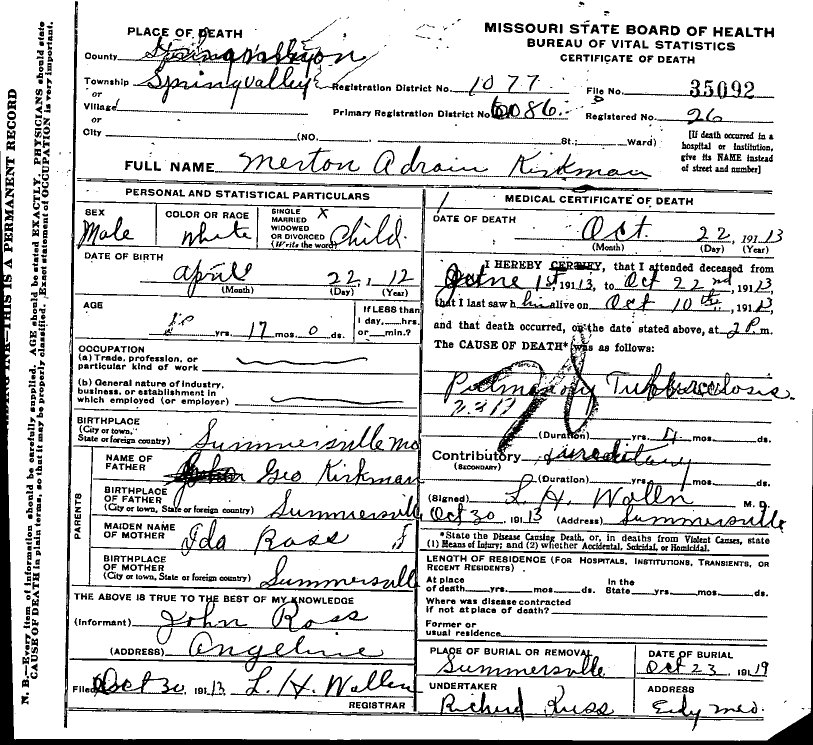 N. B.—Every item of information should be carefully supplied. AGE should be stated EXACTLY. PHYSICIANS should state
CAUSE OF DEATH in plain terms, so that it may be properly classified. Exact statement of OCCUPATION is very important.
INK—THIS IS A PERMANENT RECORD
MISSOURI STATE BOARD OF HEALTH
BUREAU OF VITAL STATISTICS
CERTIFICATE OF DEATH
PLACE OF DEATH
County
Township Springvalley Registration District No. 1077 File No. 35092
or
Village Primary Registration District No. 6086 Registered No. 26
or
City (NO. St.; Ward)
[If death occurred in a
hospital or institution,
give its NAME instead
of street and number]
FULL NAME Merton Adrain Kirkman
PERSONAL AND STATISTICAL PARTICULARS
SEX Male
COLOR OR RACE White
SINGLE X
MARRIED
WIDOWED
OR DIVORCED
(Write the word) Child.
DATE OF BIRTH
April 22, 1912
(Month) (Day) (Year)
AGE
yrs. 17 mos. 0 ds.
If LESS than
1 day,....hrs.
or....min.?
OCCUPATION
(a) Trade, profession, or
particular kind of work
(b) General nature of industry,
business, or establishment in
which employed (or employer)
BIRTHPLACE
(City or town,
State or foreign country) Summersville Mo
PARENTS
NAME OF
FATHER Geo Kirkman
BIRTHPLACE
OF FATHER
(City or town, State or foreign country) Summersville
MAIDEN NAME
OF MOTHER Ida Ross
BIRTHPLACE
OF MOTHER
(City or town, State or foreign country) Summersvill
THE ABOVE IS TRUE TO THE BEST OF MY KNOWLEDGE
(Informant) John Ross
(ADDRESS) Angeline
Filed Oct 30 1913 L. H. Wallen
REGISTRAR
MEDICAL CERTIFICATE OF DEATH
DATE OF DEATH
Oct. 22, 1913
(Month) (Day) (Year)
I HEREBY CERTIFY, that I attended deceased from
June 1st 1913, to Oct 22nd, 1913
that I last saw him alive on Oct 10th, 1913,
and that death occurred, on the date stated above, at 2 P m.
The CAUSE OF DEATH* was as follows:
Pulmonary Tuberculosis.
(Duration) yrs. mos. ds.
Contributory hereditary
(SECONDARY)
(Duration) yrs. mos. ds.
(Signed) L. H. Wallen M. D.
Oct 30 1913 (Address) Summersville
*State the Disease Causing Death, or, in deaths from Violent Causes, state
(1) Means of Injury; and (2) whether Accidental, Suicidal, or Homicidal.
LENGTH OF RESIDENCE (FOR HOSPITALS, INSTITUTIONS, TRANSIENTS, OR
RECENT RESIDENTS)
At place In the
of death yrs. mos. ds. State yrs. mos. ds.
Where was disease contracted
if not at place of death?
Former or
usual residence
PLACE OF BURIAL OR REMOVAL DATE OF BURIAL
Summersville Oct 23 1919
UNDERTAKER ADDRESS
Richard